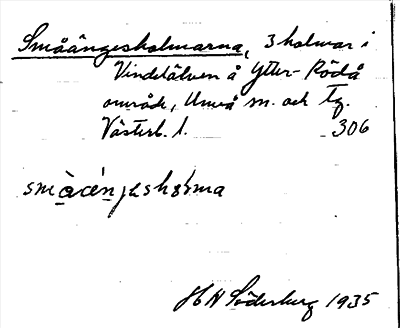 Småängesholmarna, 3 holmar i
Vindelälven å Ytter-Rödå
område, Umeå sn. och tg.
Västerb. l. 306
H N Söderberg 1935